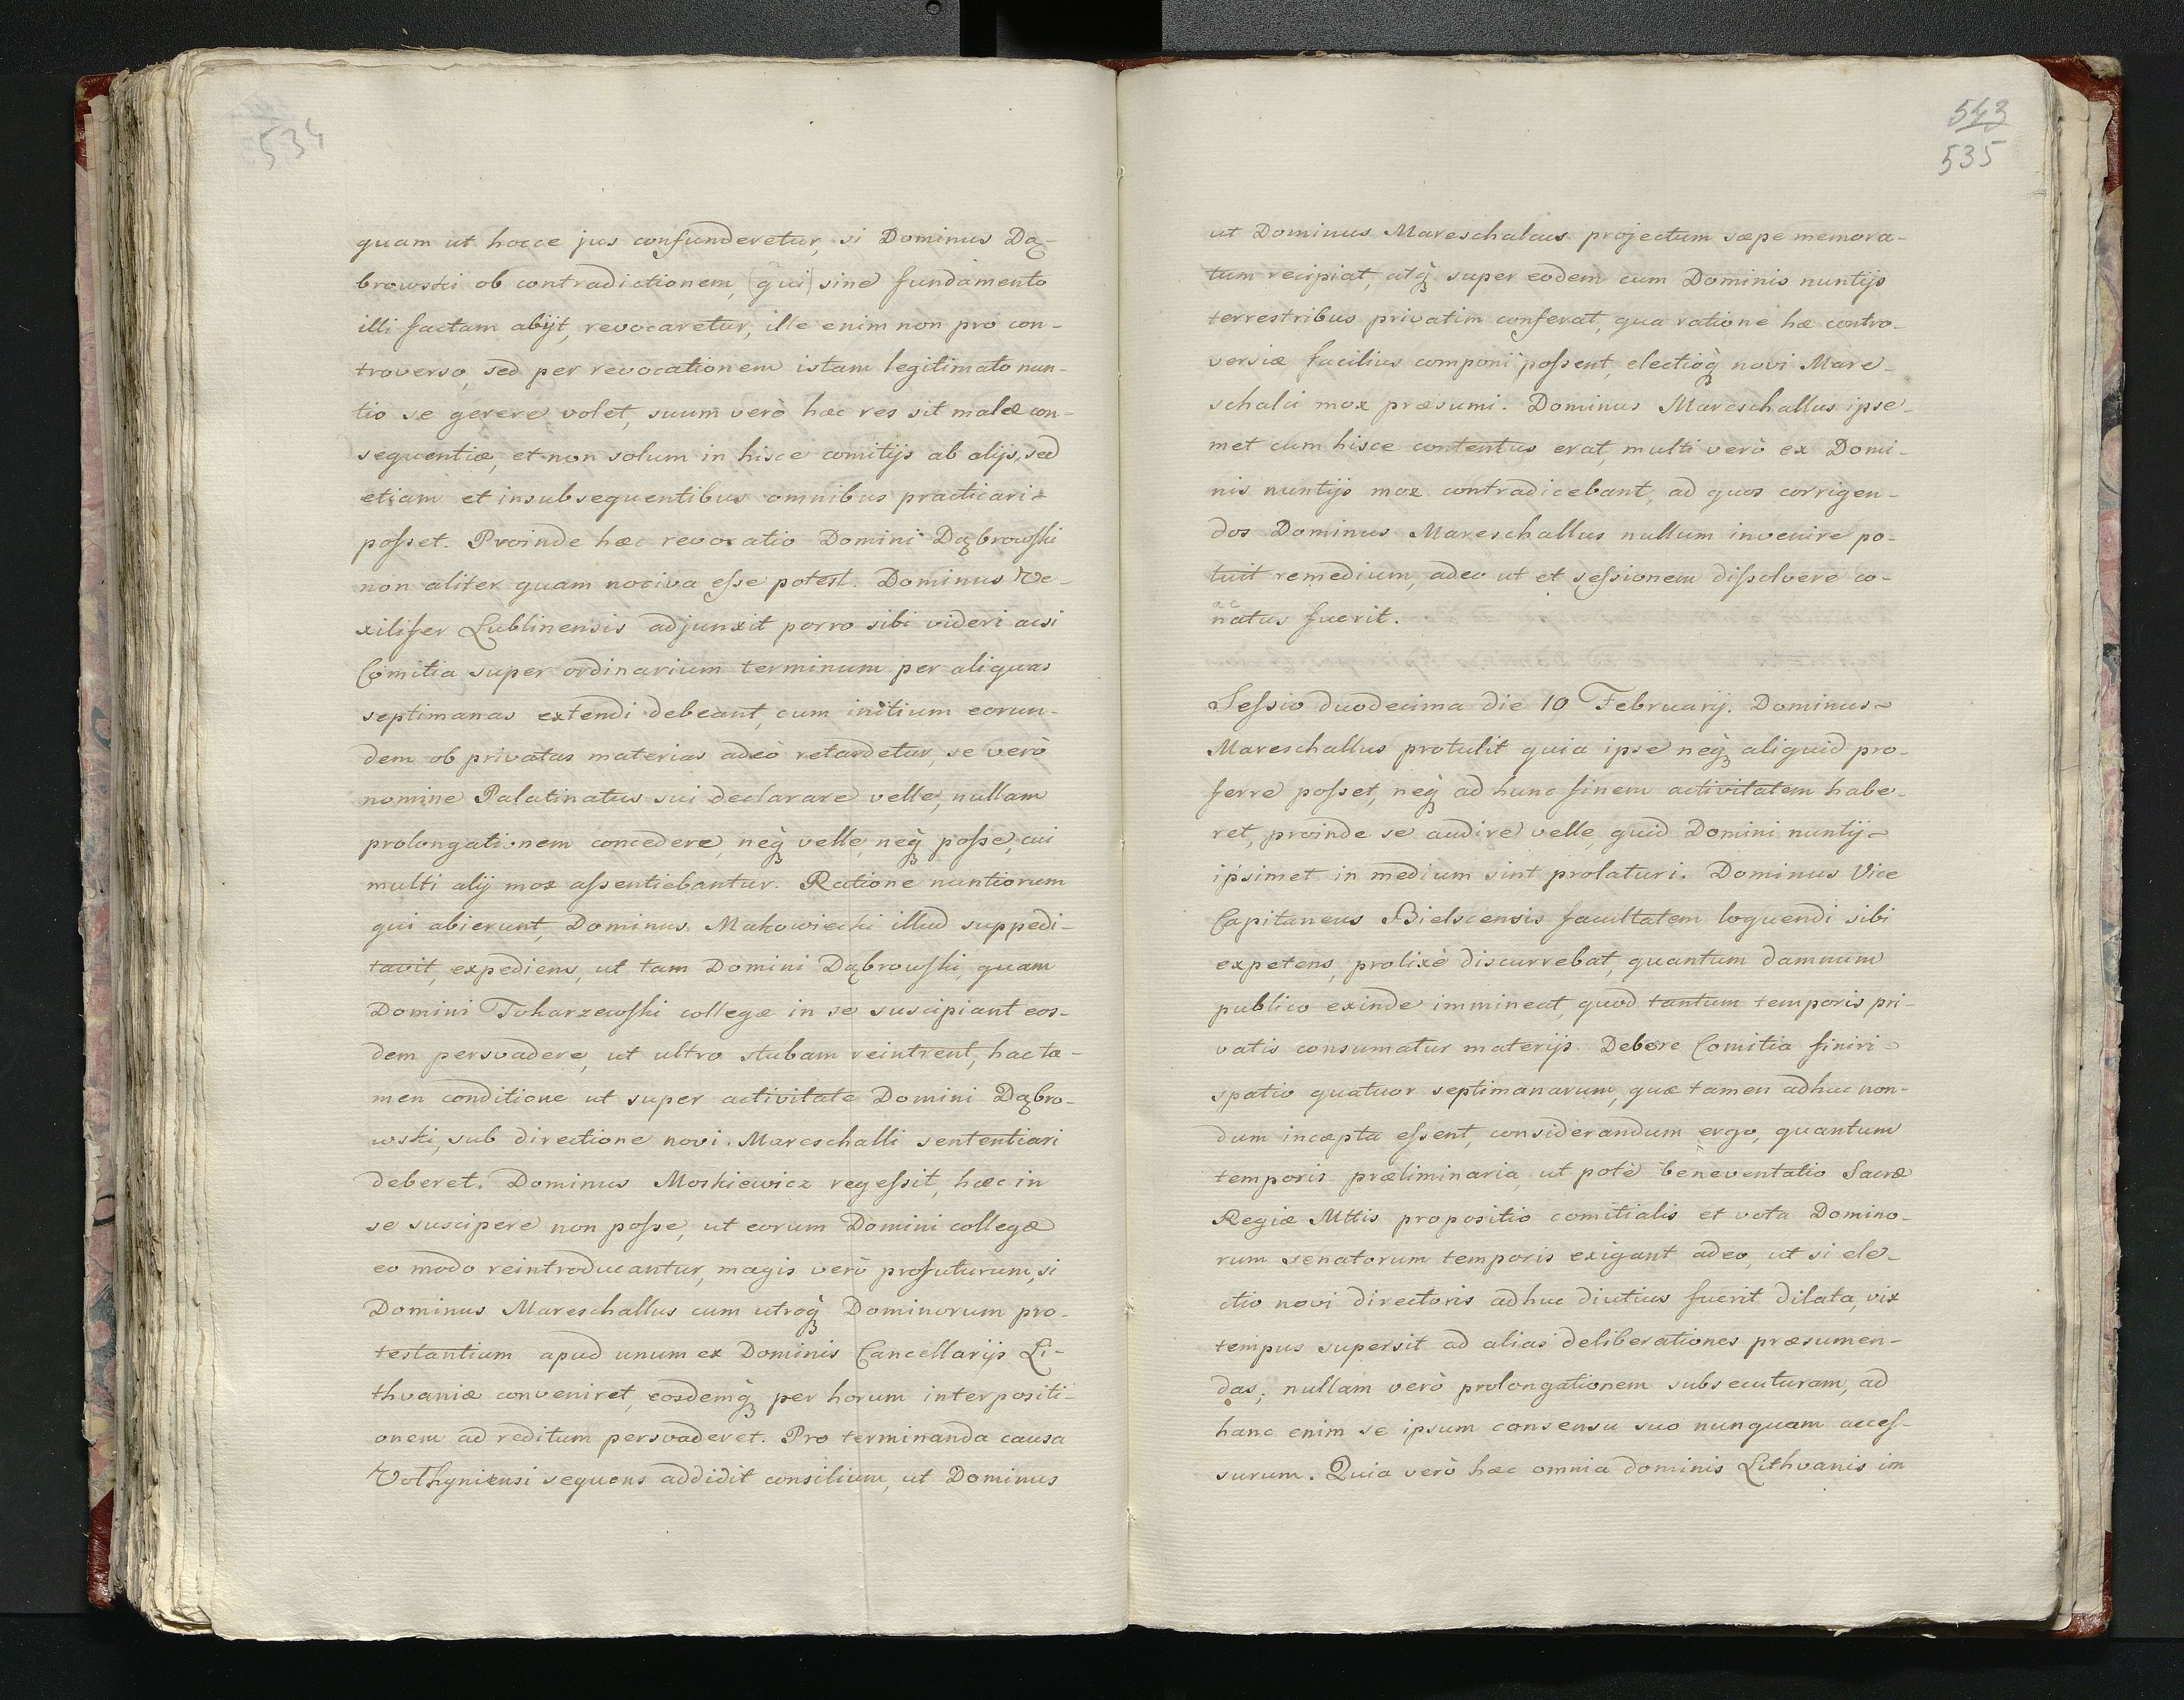 534
quam ut hocce jus confunderetur, si Dominus Dą-
browski ob contradictionem, (qui) sine fundamento
illi factam abijt, revocaretur, ille enim non pro con-
troverso, sed per revocationem istam legitimato nun-
tio se gerere volet, suum verò hæc res sit malæ con-
sequentiæ, et non solum in hisce comitijs ab alijs, sed
etiam et in subsequentibus omnibus practicari
posset. Proinde hæc revocatio Domini Dąbrowski
non aliter quam nociva esse potest. Dominus Ve-
xilifer Lublinensis adjunxit porro sibi videri acsi
Comitia super ordinarium terminum per aliquas
septimanas extendi debeant, cum initium eorun-
dem ob privatas materias adeò retardetur, se verò
nomine Palatinatus sui declarare velle, nullam
prolongationem concedere, neq̀ velle, neq̀ posse, cui
multi alij mox assentiebantur. Ratione nuntiorum
qui abierunt, Dominus Makowiecki illud suppedi-
tavit, expediens, ut tam Domini Dąbrowski, quam
Domini Tokarzewski collegæ in se suscipiant eos-
dem persvadere, ut ultro stubam reintrent, hac ta-
men conditione ut super activitate Domini Dąbro-
wski, sub directione novi Mareschalli sententiari
deberet. Dominus Moskiewicz regessit, hæc in
se suscipere non posse, ut eorum Domini collegæ
eo modo reintroducantur, magis verò profuturum, si
Dominus Mareschallus cum utroq̀ Dominorum pro-
testantium apud unum ex Dominis Cancellarijs Li-
thvaniæ conveniret, eosdemq̀ per horum interpositi-
onem ad reditum persvaderet. Pro terminanda causa
Volhyniensi sequens addidit consilium, ut Dominus
543
535
ut Dominus Mareschalcus projectum sæpe memora-
tum recipiat, atq̀ super eodem cum Dominis nuntijs
terrestribus privatim conferat, qua ratione hæ contro-
versiæ facilius componi possent, electioq̀ novi Mare-
schalci mox præsumi. Dominus Mareschallus ipse-
met cum hisce contentus erat, multi verò ex Domi-
nis nuntijs mox contradicebant, ad quos corrigen-
dos Dominus Mareschallus nullum invenire po-
tuit remedium, adeo ut et sessionem dissolvere co-
ac
natus fuerit.
Sessio duodecima die 10 Februarij. Dominus
Mareschallus protulit quia ipse neq̀ aliquid pro-
ferre posset, neq̀ ad hunc finem activitatem habe-
ret, proinde se audire velle, quid Domini nuntij
ipsimet in medium sint prolaturi. Dominus Vice
Capitaneus Bielscensis facultatem loquendi sibi
expetens, prolixè discurrebat, quantum damnum
publico exinde immineat, quod tantum temporis pri-
vatis consumatur materijs. Debere Comitia finiri
spatio quatuor septimanarum, quæ tamen adhuc non-
dum incæpta essent, considerandum ergo, quantum
temporis præliminaria, ut potè beneventatio Sacræ
Regiæ Mttis propositio comitialis et vota Domino-
rum senatorum temporis exigant adeo, ut si ele-
ctio novi directoris adhuc diutius fuerit dilata, vix
tempus supersit ad alias deliberationes præsumen-
das; nullam verò prolongationem subsecuturam, ad
hanc enim se ipsum consensu suo nunquam acces-
surum. Quia verò hæc omnia dominis Lithvanis im